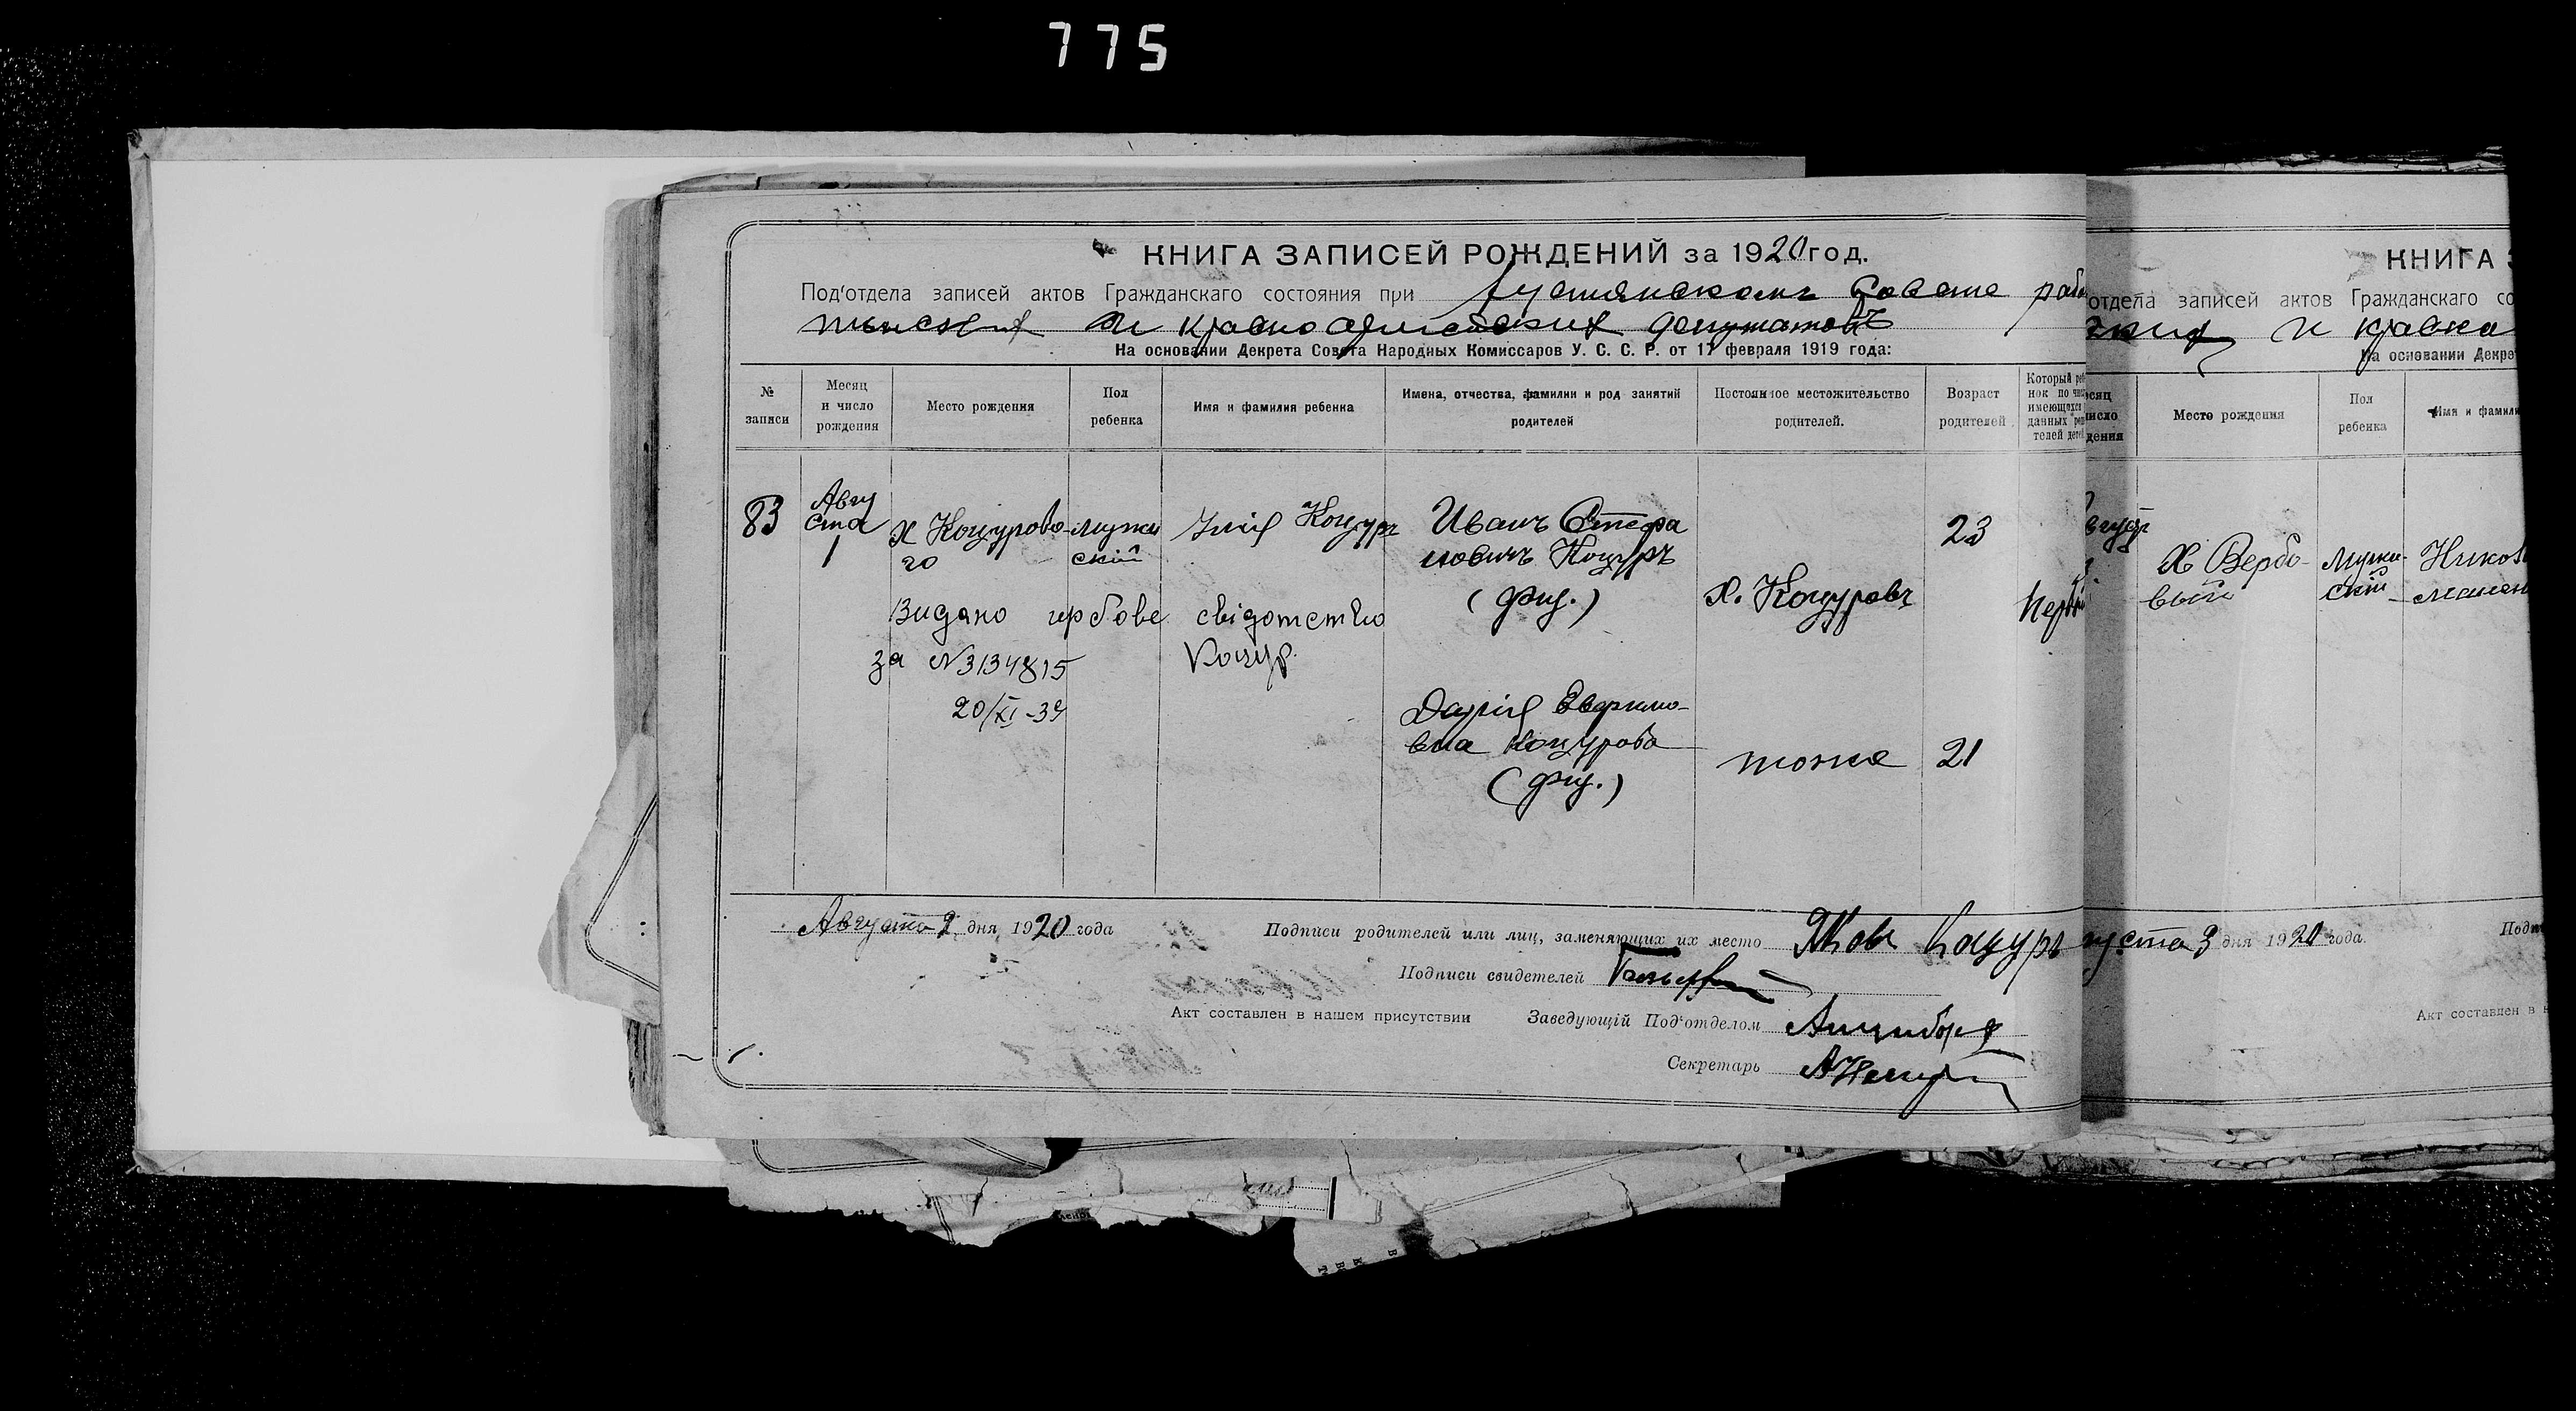 775
КНИГА ЗАПИСЕЙ РОЖДЕНИЙ за 1920 год.
Под'отдела записей актов Гражданскаго состояния при Совете
и красноармейских депутатовъ
На основании Декрета Совета Народных Комиссаров У. С. С. Р. от 17 февраля 1919 года:
№ записи
Месяц и число рождения
Место рождения
Пол ребенка
Имя и фамилия ребенка
Имена, отчества, фамилии и род занятий родителей
Постоянное местожительство родителей.
Возраст родителей
83
Авгу
ста
1
Х Коцурово-
го
мужи
скій
Илія Коцуръ
Иванъ Стефа
новичъ Коцуръ
Х. Коцуровъ
23
Видано гербове свідотство
за №3134815 Коцур.
20/XI-39
Дарія Евфимо-
вна Коцурова
тоже
21
Августа 2 дня 1920 года
Подписи родителей или лиц, заменяющих их место Яков Коцуръ
Подписи свидетелей
Акт составлен в нашем присутствии Заведующій Под'отделом
Секретарь
КНИГА
отдела записей актов Гражданскаго со
и красно
На основании Декре
Место рождения
Пол ребенка
Имя и фамили
Х Вербо-
вый
мужи-
скій
Никол
густа 3 дня 1920 года.
Акт составлен в н